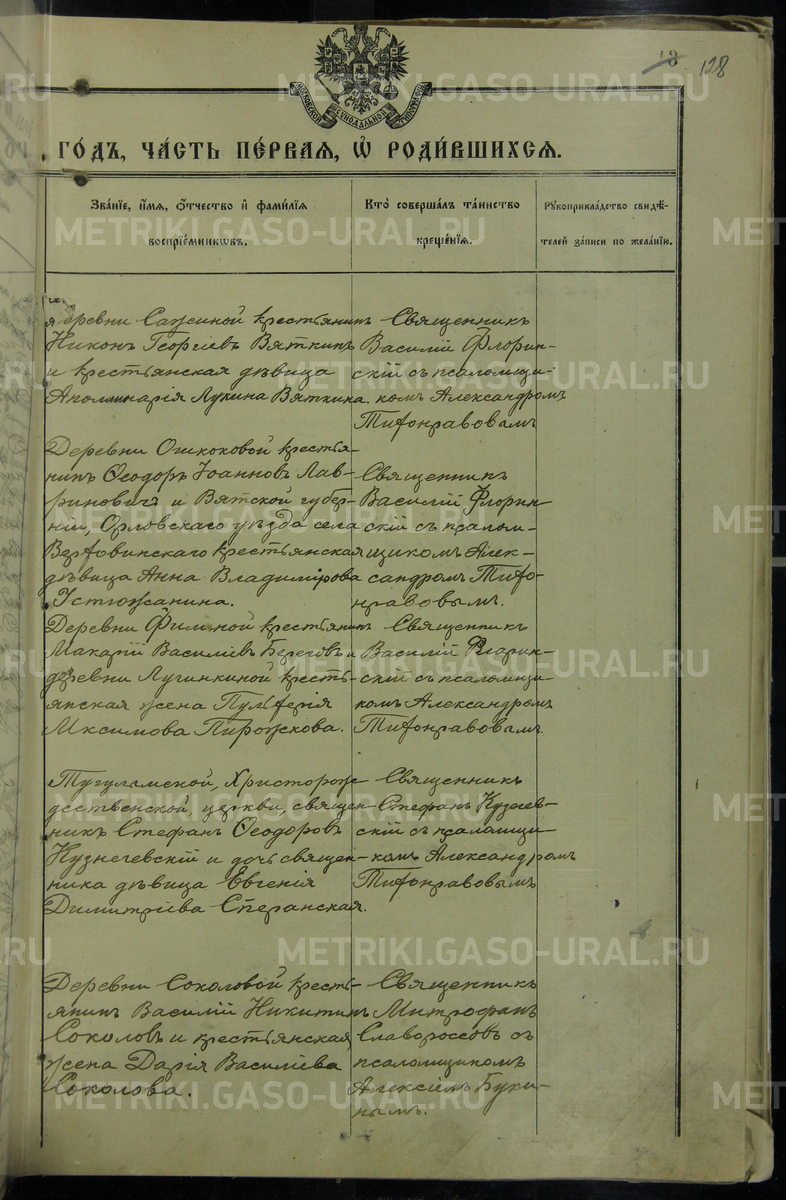 128
годъ, часть первая, ѡ родившихся.
Званіе, имя, отчество и фамилія
воспріемниковъ.
Кто совершалъ таинство
крещенія.
Рукоприкладство свидѣ-
телей записи по желанію.
деревни Сажиной крестьянинъ
Никонъ Георгіевъ Вяткинъ
и крестьянская дѣвица
Аполинарія Лукина Вяткина.
Священникъ
Василій Флорин-
скій съ псаломщи-
комъ Александромъ
Тихонравовымъ
Деревни Ошкоковой крестья-
нинъ Ѳеодоръ Іоанновъ Лав-
риновичъ и Вятской губер-
ніи, Орловскаго уѣзда села
Верховинскаго крестьянская
дѣвица Анна Владимірова
Устюжанина.
Священникъ
Василій Флорин-
скій съ псалом-
щикомъ Алек-
сандромъ Тихо-
нравовымъ.
Деревни Филиной крестьянинъ
Макарій Василіевъ Береговъ и
деревни Лучинкиной кресть-
янская жена Пульхерія
Мксимова Пирожкова.
Священникъ
Василій Флорин-
скій съ псаломщи-
комъ Александромъ
Тихонравовымъ.
Тугулымской, Христорож-
дественской церкви, священ-
никъ Стефанъ Ѳеодоровъ
Кузнечевскій и дочь священ-
ника дѣвица Евгенія
Димитріева Сперанская.
Священникъ
Стефанъ Кузнечев-
скій съ псаломщи-
комъ Александромъ
Тихонравовымъ
Деревни Соколовой кресть-
янинъ Василій Никитинъ
Соколовъ и крестьянская
жена Дарія Василіева
Соколова.
Священникъ
Митрофанъ
Славороссовъ съ
псаломщикомъ
Алексіемъ Буки-
нымъ.
METRIKI.GASO-URAL.RU